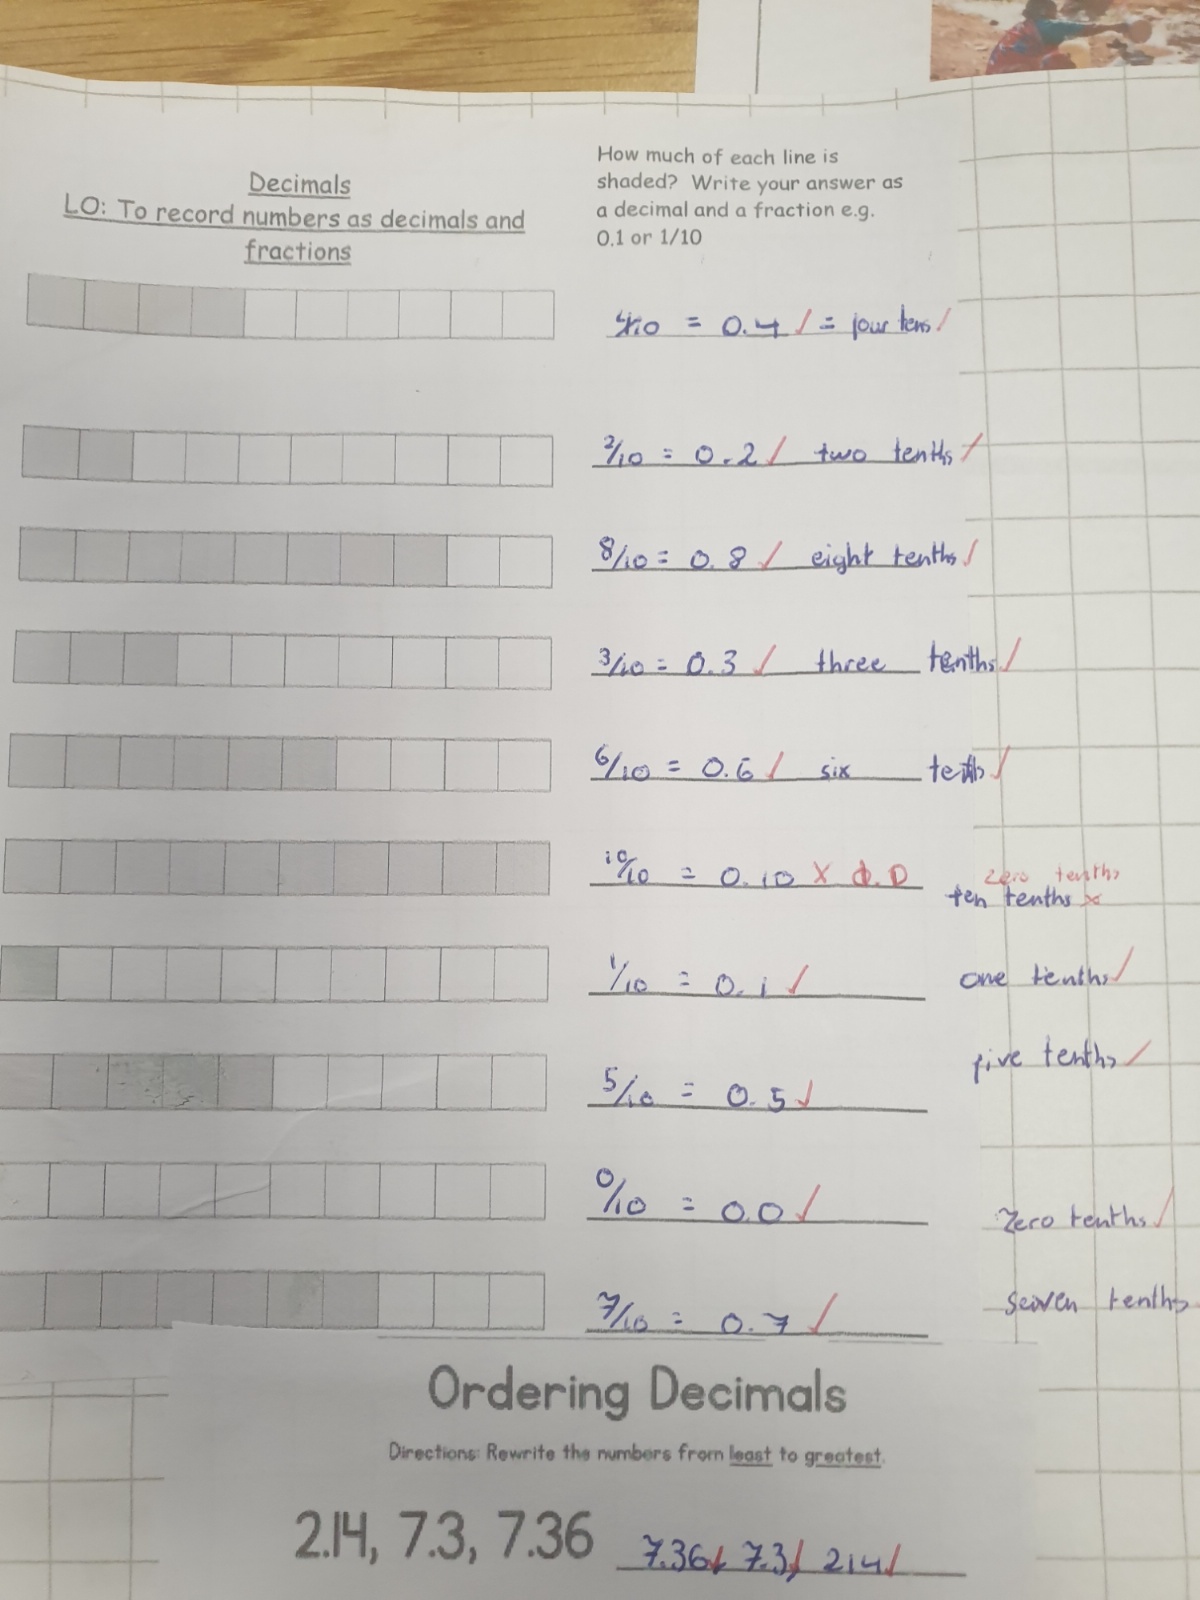 Decimals
LO: To record numbers as decimals and
fractions
How much of each line is
shaded? Write your answer as
a decimal and a fraction e.g.
0.1 or 1/10
4/10 = 0.4 ✓ = four tens ✓
2/10 = 0.2 ✓ two tenths ✓
8/10 = 0.8 ✓ eight tenths ✓
3/10 = 0.3 ✓ three tenths ✓
6/10 = 0.6 ✓ six tenths ✓
10/10 = 0.10 ✗
zero tenths
ten tenths ✗
1/10 = 0.1 ✓ one tenths ✓
5/10 = 0.5 ✓ five tenths ✓
0/10 = 0.0 ✓ Zero tenths ✓
7/10 = 0.7 ✓ seven tenths
Ordering Decimals
Directions: Rewrite the numbers from least to greatest.
2.14, 7.3, 7.36 7.36 ✓ 7.3 ✓ 2.14 ✓